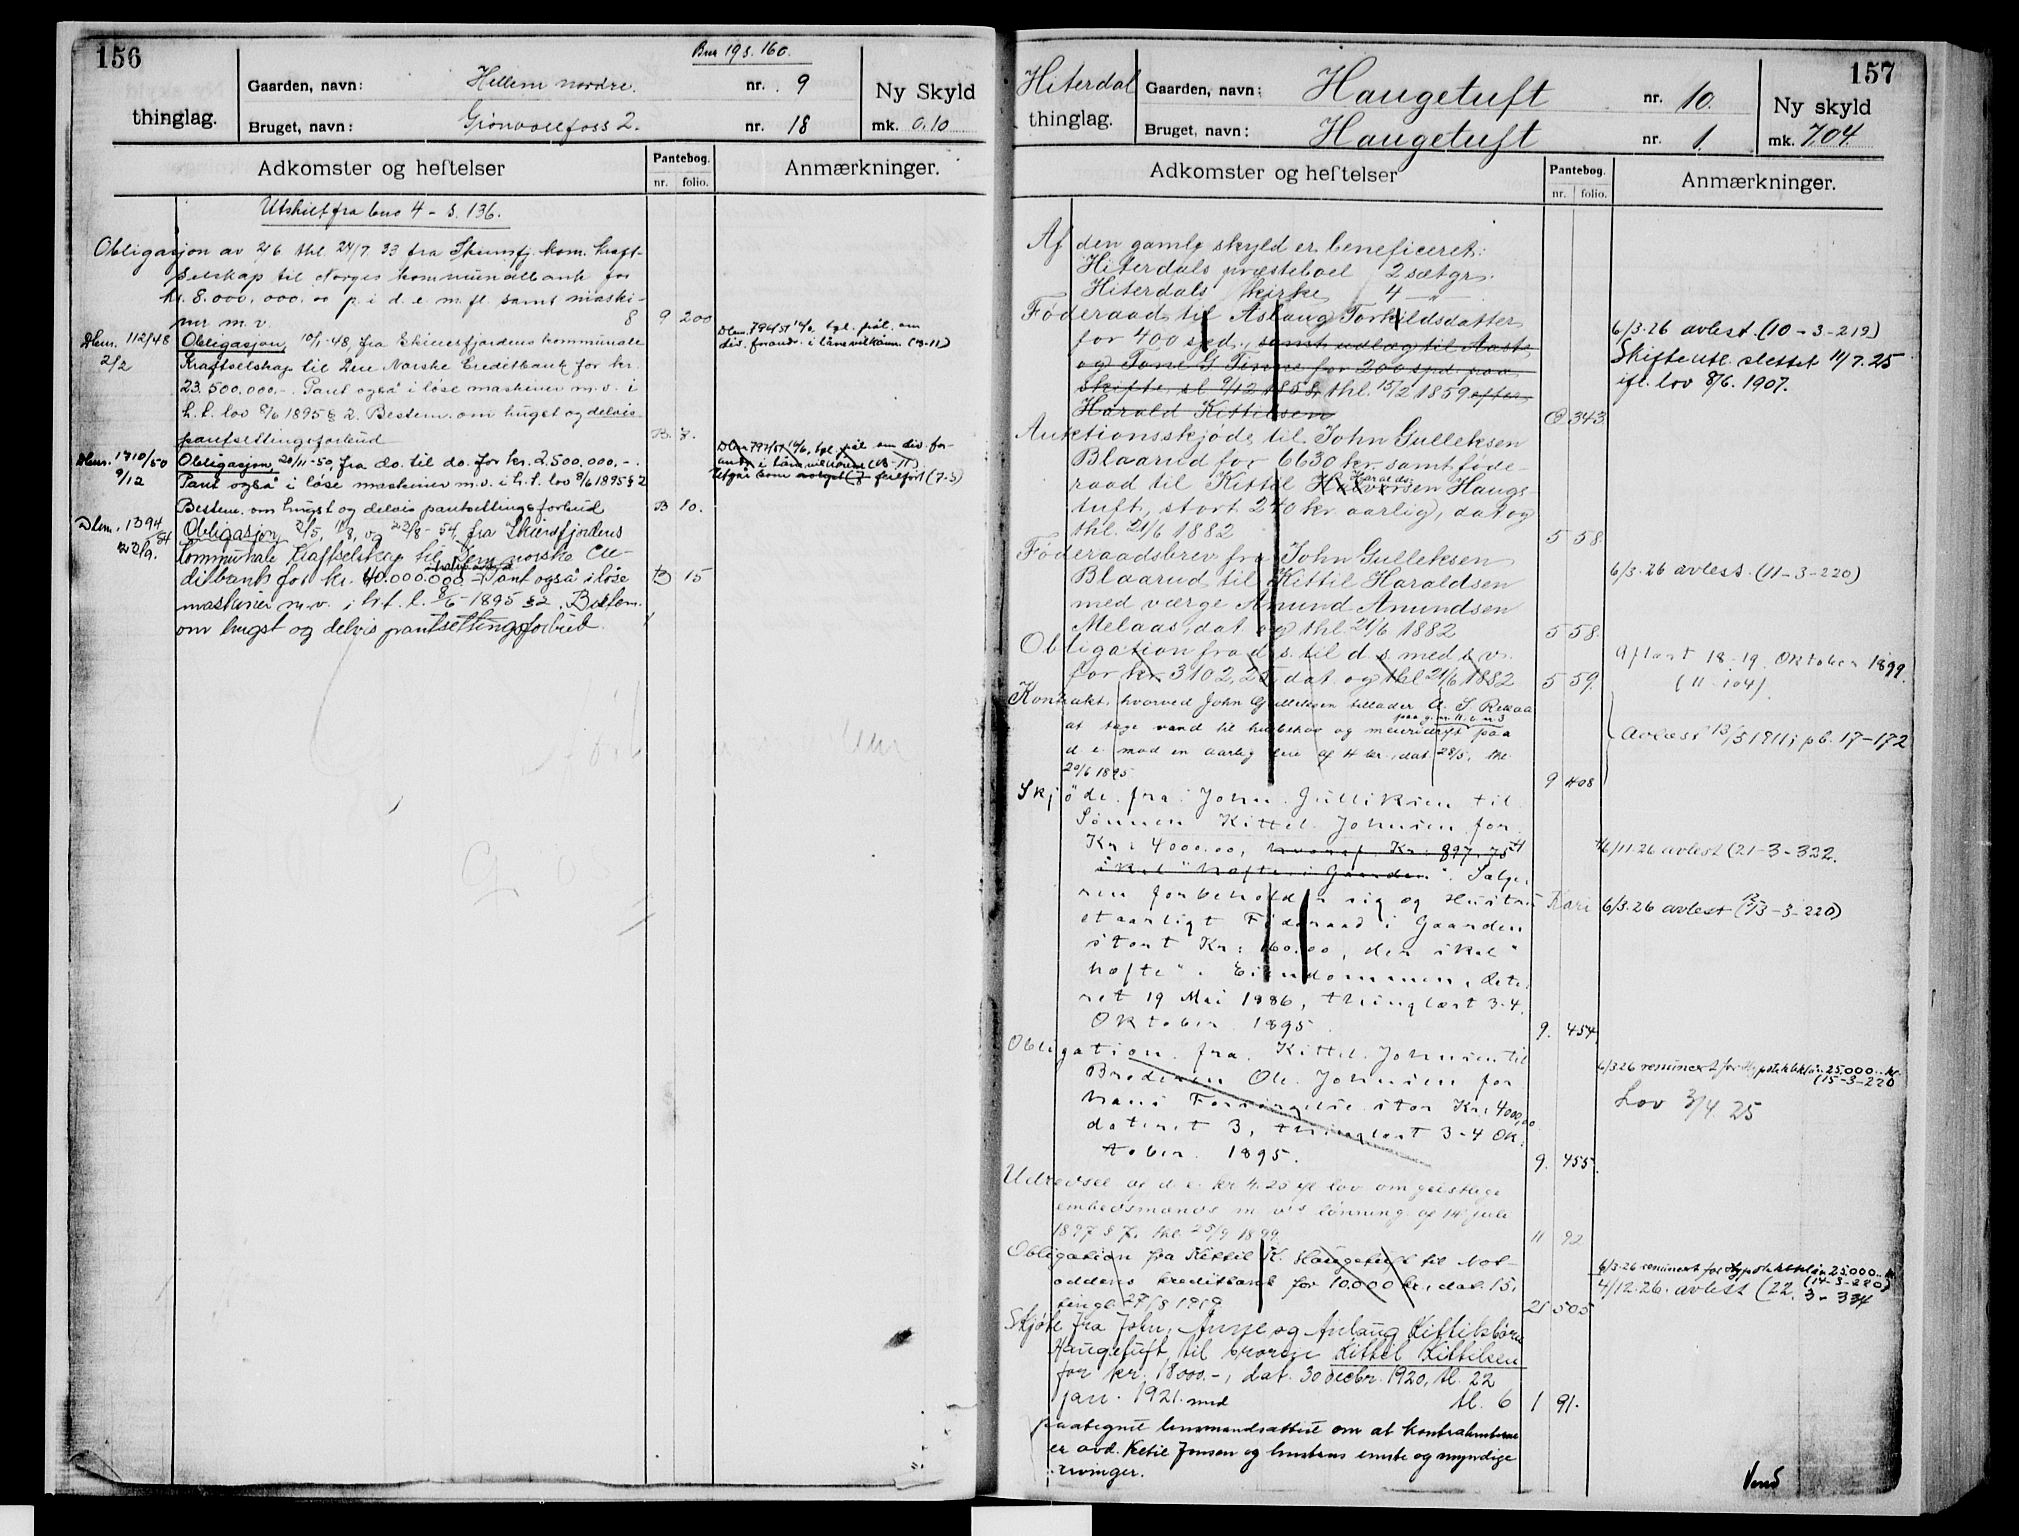 156
Bnr 19 s. 160.
thinglag.
Gaarden, navn: Hellem nordre. nr. 9
Bruget, navn: Grönvollfoss 2. nr. 18
Ny Skyld
mk. 0.10
Adkomster og heftelser
Pantebog.
nr. folio.
Anmærkninger.
Utskilt fra bno 4 - s. 136.
Obligasjon av 2/6 thl. 24/7 33 fra Skiensfj. kom. kraft-
selskap til Norges kommunalbank for
kr. 8.000.000.00 p. i d. e. m. fl. samt maski-
ner m. v. 8 9 200
Dbnr. 112/48
2/2
Obligasjon, 10/1-48, fra Skiensfjordens kommunale
Kraftselskap til Den Norske Creditbank for kr.
23.500.000.- Pant også i löse maskiner m.v. i
h. t. lov 8/6 1895 § 2. Bestem. om hugst og delvis
pantsettingsforbud B. 7.
Dbnr. 1910/50
9/12
Obligasjon, 20/11-50, fra do. til do. for kr. 2.500.000.-.
Pant også i löse maskiner m.v. i h. t. lov 8/6 1895 § 2
Bestem. om hugst og delvis pantsettingsforbud B 10.
Dbnr. 1394/54
23/9.
Obligasjon 3/5, 11/8, og 23/8-54, fra Skiensfjordens
kommunale kraftselskap til Den norske Cre-
ditbank for kr. 40.000.000.- Pant også i löse B 15
maskiner m.v. i h. t. l. 8/6-1895 § 2. Bestem.
om hugst og delvis pantsettingsforbud.
div. forandr. i lånevilkårn. (13-11)
157
Hiterdal
thinglag.
Gaarden, navn: Haugetuft nr. 10.
Bruget, navn: Haugetuft nr. 1
Ny skyld
mk. 7.04.
Adkomster og heftelser
Pantebog.
nr. folio.
Anmærkninger.
Af den gamle skyld er beneficeret:
Hiterdals præstebol 2 sætgr.
Hiterdals kirke 4 — " —
Föderaad til Aslaug Torkildsdatter
for 400 spd., samt udlæg til Aaste
og Tone G. Tinne for 200 spd. paa
skifte, sl. 9/12 1858, thl. 15/2 1859 efter
Harald Kittilsen Q 343
6/3.26 avlest (10-3-219)
Skifteutl. slettet 11/7.25
ifl. lov 8/6. 1907.
Auktionsskjøde til John Gulleksen
Blaarud for 6630 kr. samt föde-
raad til Kittil Halvorsen Hauge- Haralds
tuft, stort 240 kr aarlig, dat og
thl. 21/6 1882 5 58
Föderaadsbrev fra John Gulleksen
Blaarud til Kittil Haraldsen
med værge Amund Amundsen
Melaas, dat. og thl. 21/6 1882 5 58.
6/3.26 avlest. (11-3-220)
Obligation fra d. s. til d. s. med s. v.
for kr. 3102,25, dat. og thl 21/6 1882 5 59.
Aflæst 18-19. Oktober 1899.
(11-104).
Kontrakt, hvorved John Gulleksen tillader A. S. Rekaa
paa g. nr. 11. b. nr. 3
at tage vand til husbehov og meieridrift paa
d. e. mod en aarlig leie af 4 kr., dat. 28/5, thl.
20/6 1895 9 408
Avlæst 13/5 1911; pb. 17-172
Skjøde fra John Gulliksen til
Sønnen Kittel Johnsen for
Kr: 4000.00, hvoraf Kr: 897.75
skal "hæfte i Gaarden". Sælge-
ren forbeholder sig og Hustru Kari
et aarligt Föderaad i Gaarden
stort Kr: 160.00, der skal "
hæfte" i Eiendommen, date-
ret 19 Mai 1886, thinglæst 3-4.
Oktober 1895. 9. 454
16/11.26 avlest (21-3-322.
6/3.26 avlest (13-3-220)
Obligation fra Kittel Johnsen til
Broderen Ole Johnsen for
hans Forsörgelse stor Kr: 4000,00
dateret 3, thinglæst 3-4 Ok-
tober 1895. 9. 455.
6/3.26 reminert for Hypotekklån 25.000.- kr.
(15-3-220
Lov 3/4 25
Udredsel af d. e. kr 4.25 ifl lov om geistlige
embedsmænds m vs lönning af 14 juli
1897 § 7, thl 25/9 1899 11 92
Obligation fra Kittil K. Haugetuft til Not-
oddens kreditbank for 10.000 kr., dat. 15,
tingl. 27/8 1919 21 505
6/3.26 reminert for Hypotekklån 25.000.- kr
(14-3-220)
4/12.26. avlest (22. 3-334
Skjøte fra John, Anne og Aslaug Kittilsbörn
Haugetuft til broren Kittel Kittilsen
for kr. 18000.-, dat. 30 decbr. 1920, tl. 22
jan. 1921. med tl. 6 1 91.
paategnet lensmandsattest om at kontrahenterne
er avd. Ketil Jonsen og hustrus eneste og myndige
arvinger.
Vend